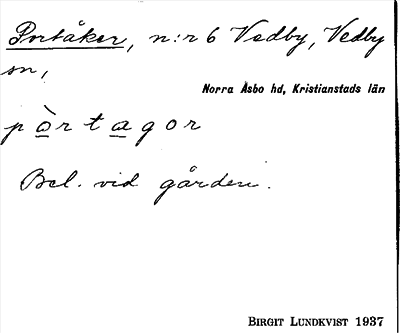 Portåker, n:r 6 Vedby, Vedby
sn,
Norra Åsbo hd, Kristianstads län
pòrtagor
Bel. vid gården.
BIRGIT LUNDKVIST 1937